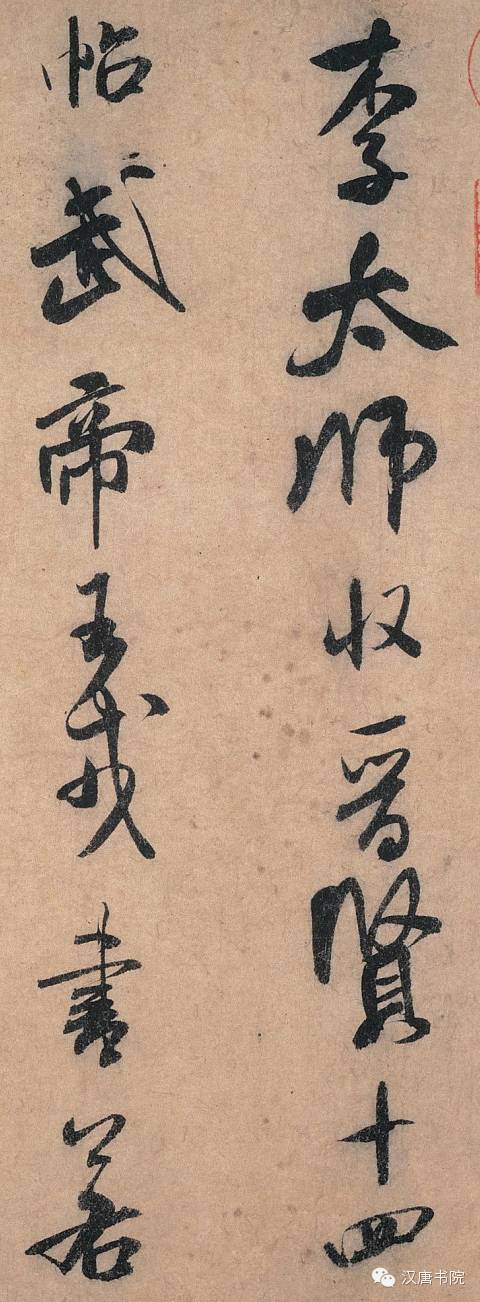 李太师收晋贤十四
帖武帝王戎书若
汉唐书院